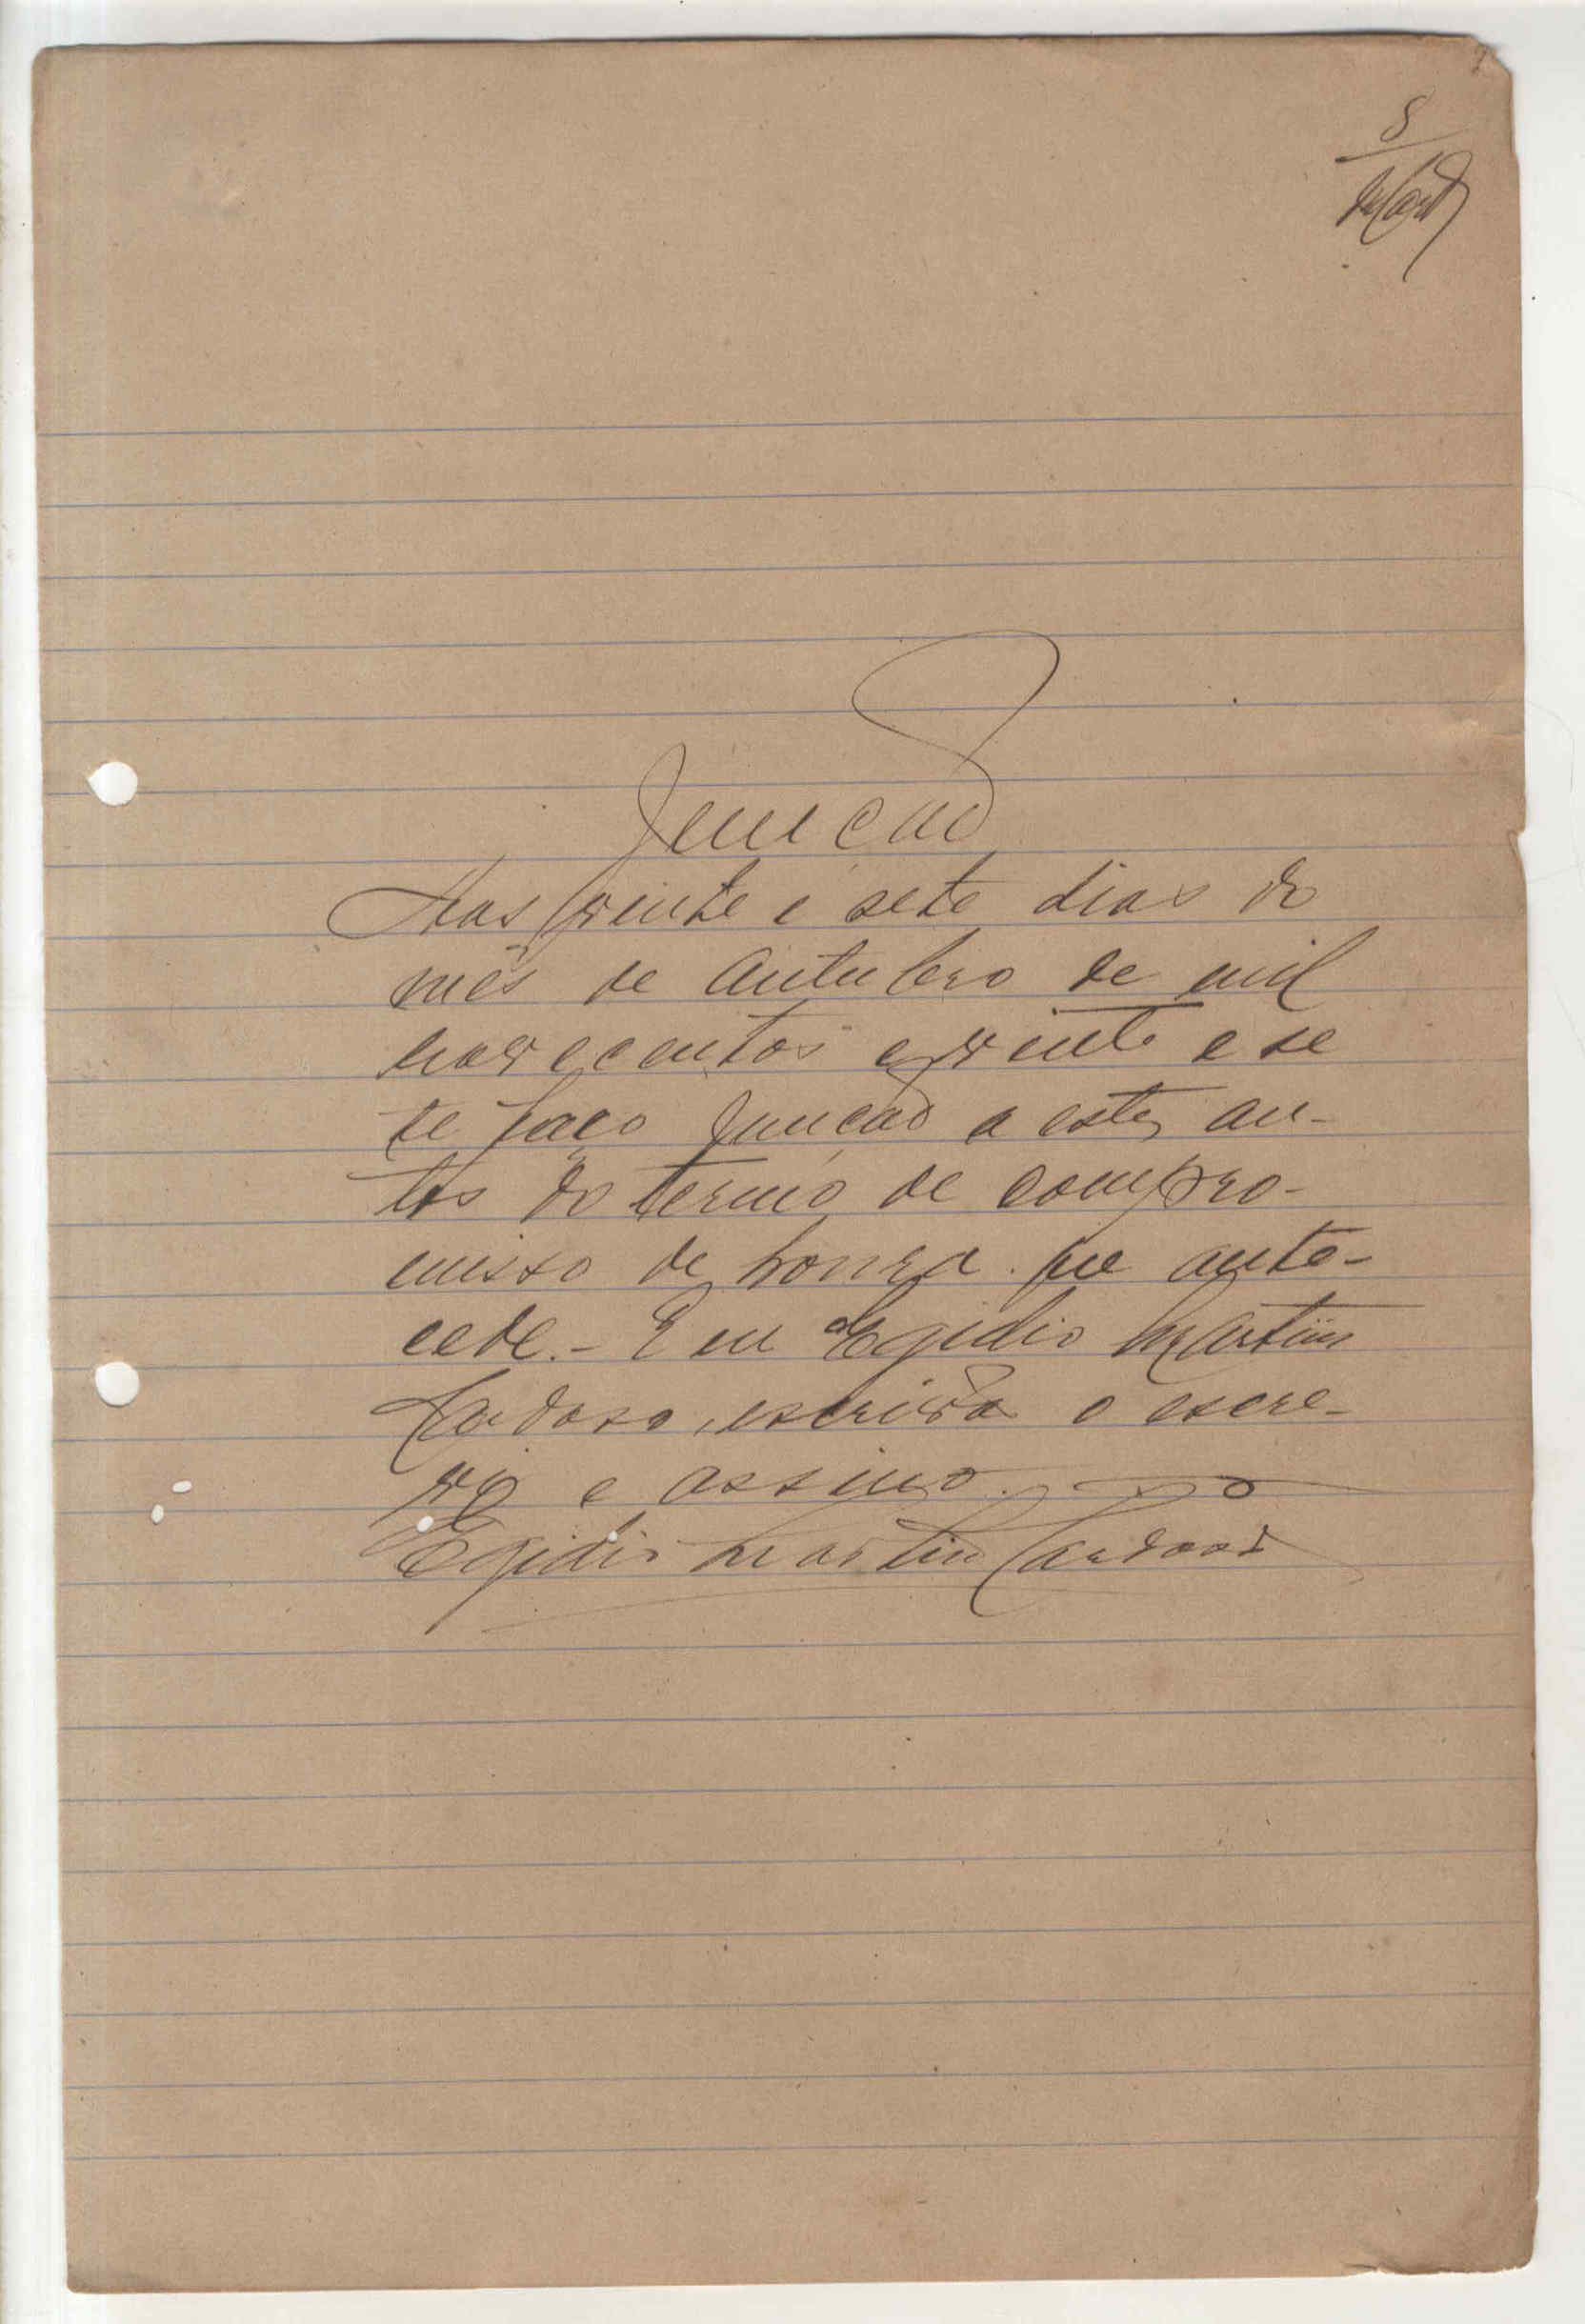 8
Junção
Aos vinte e sete dias do
mês de Outubro de mil
novecentos e vinte e se
te faço junção a estes au-
tos do termo de compro-
misso de honra que ante-
cede. - E eu Egidio Martins
Cardoso, escrivão o escre-
vo e assino.
Egidio Martins Cardoso